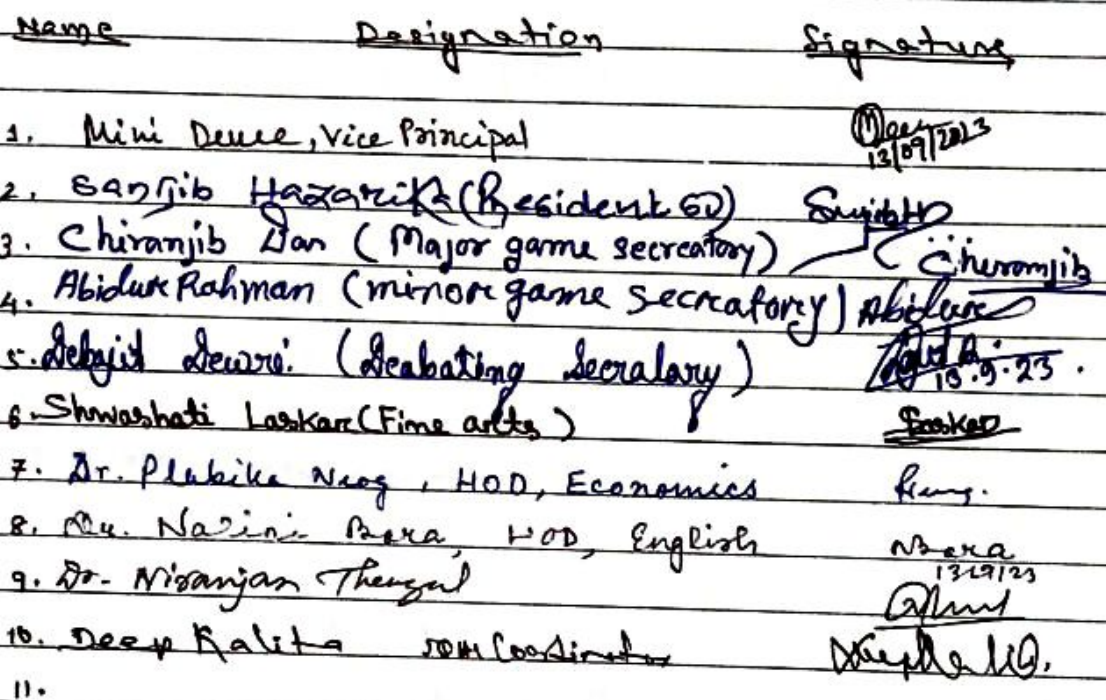 Name Designation Signature
1. Mini Deuce, Vice Principal 13/09/2023
2. Sanjib Hazarika (President)
3. Chiranjib Das (Major game secreatory) Chiromjib
4. Abidur Rahman (minor game secreatory) Abidur
5. Debajit Dewri. (Deabating Secralary) 13.9.23.
6. Shwashati Laskar (Fime arts) Laskar
7. Dr. Plabika Neog, HOD, Economics
8. Nazini Bora, HOD, English NBora
13/9/23
9. Dr. Niranjan Thengal
10. Deep Kalita Coordinator
11.